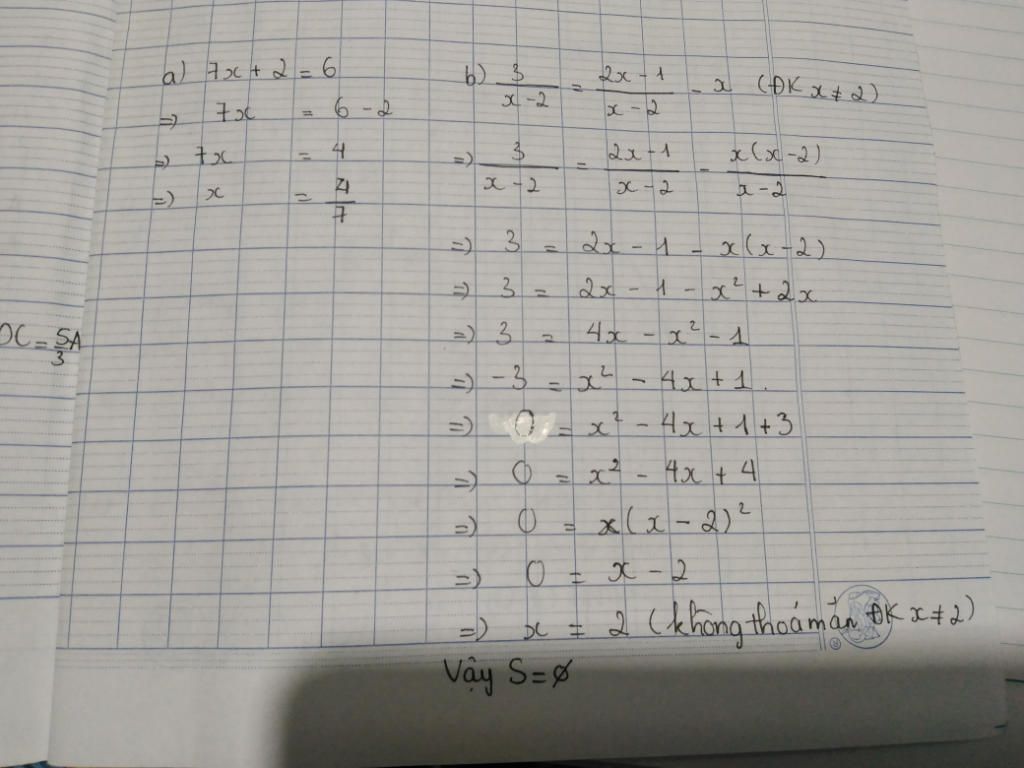 a) 7x + 2 = 6
=> 7x = 6 - 2
=> 7x = 4
=> x = 4/7
b) 3/(x-2) = (2x-1)/(x-2) - x (ĐK x ≠ 2)
=> 3/(x-2) = (2x-1)/(x-2) - x(x-2)/(x-2)
=> 3 = 2x - 1 - x(x-2)
=> 3 = 2x - 1 - x² + 2x
=> 3 = 4x - x² - 1
=> -3 = x² - 4x + 1.
=> 0 = x² - 4x + 1 + 3
=> 0 = x² - 4x + 4
=> 0 = (x - 2)²
=> 0 = x - 2
=> x = 2 (không thoả mãn ĐK x ≠ 2)
Vậy S = ∅
DC = 5A/3